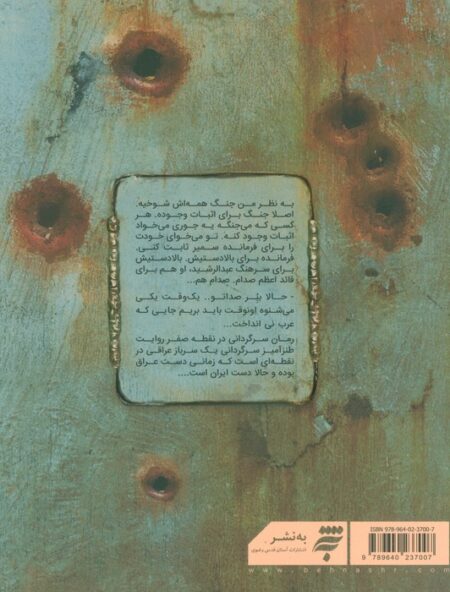 به نظر من جنگ همه‌اش شوخیه.
اصلا جنگ برای اثبات وجوده. هر
کسی که می‌جنگه یه جوری می‌خواد
اثبات وجود کنه. تو می‌خوای خودت
را برای فرمانده سمیر ثابت کنی.
فرمانده برای بالادستیش. بالادستیش
برای سرهنگ عبدالرشید، او هم برای
قائد اعظم صدام. صدام هم...
- حالا ببُر صداتو.. یک‌وقت یکی
می‌شنوه اونوقت باید بریم جایی که
عرب نی انداخت...
رمان سرگردانی در نقطه صفر روایت
طنزآمیز سرگردانی یک سرباز عراقی در
نقطه‌ای است که زمانی دست عراق
بوده و حالا دست ایران است....
به‌نشر
انتشارات آستان قدس رضوی
ISBN 978-964-02-3700-7
9 789640 237007